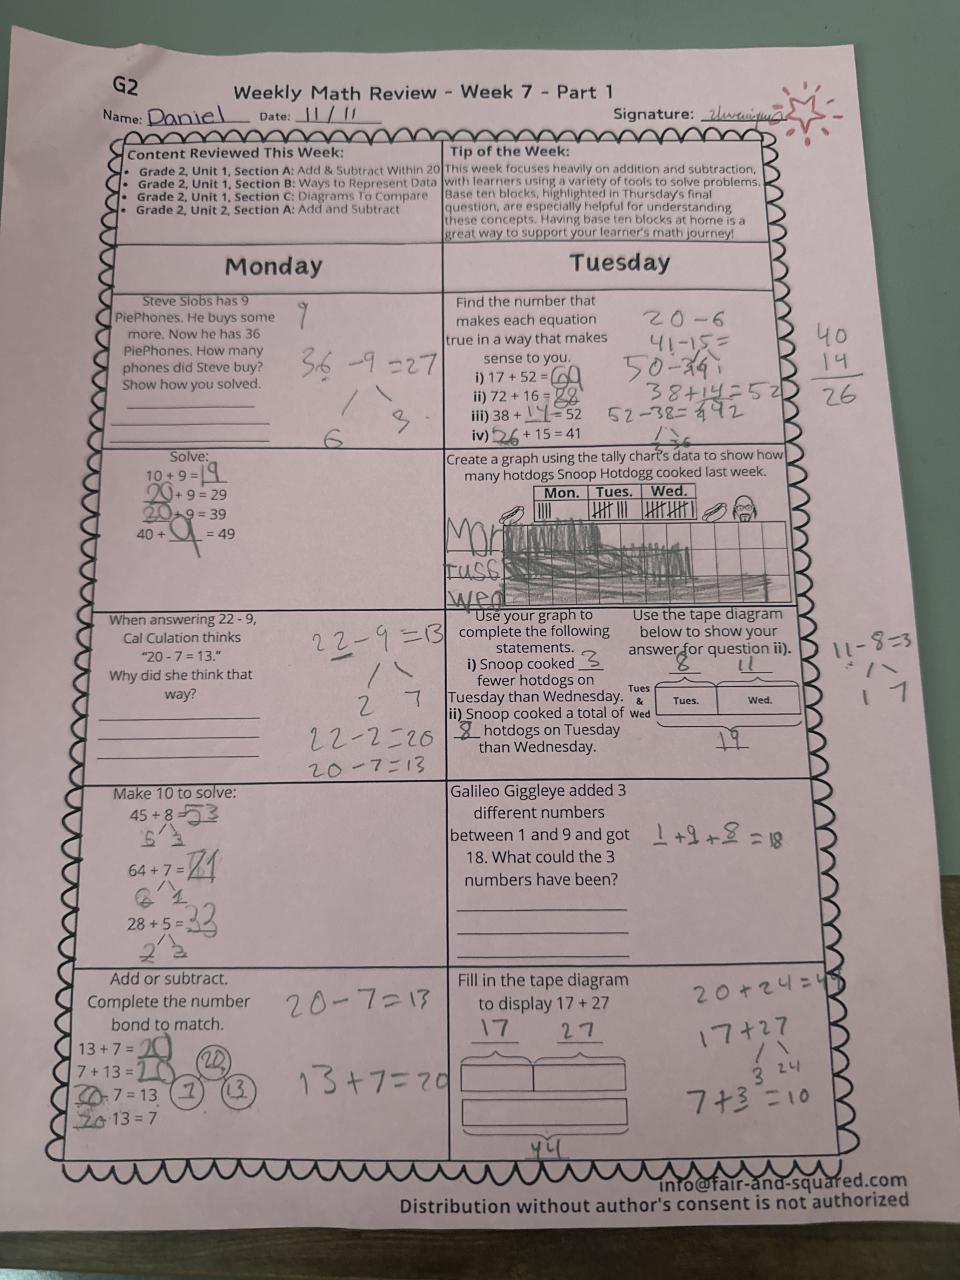 G2
Weekly Math Review - Week 7 - Part 1
Name: Daniel Date: 11/11 Signature:
Content Reviewed This Week:
• Grade 2, Unit 1, Section A: Add & Subtract Within 20
• Grade 2, Unit 1, Section B: Ways to Represent Data
• Grade 2, Unit 1, Section C: Diagrams To Compare
• Grade 2, Unit 2, Section A: Add and Subtract
Tip of the Week:
This week focuses heavily on addition and subtraction,
with learners using a variety of tools to solve problems.
Base ten blocks, highlighted in Thursday's final
question, are especially helpful for understanding
these concepts. Having base ten blocks at home is a
great way to support your learner's math journey!
Monday
Steve Slobs has 9
PiePhones. He buys some
more. Now he has 36
PiePhones. How many
phones did Steve buy?
Show how you solved.
9
36 - 9 = 27
6 3
Solve:
10 + 9 = 19
20 + 9 = 29
+ 9 = 39
40 + 9 = 49
When answering 22 - 9,
Cal Culation thinks
"20 - 7 = 13."
Why did she think that
way?
22 - 9 = 13
2 7
22 - 2 = 20
20 - 7 = 13
Make 10 to solve:
45 + 8 = 53
5 3
64 + 7 = 71
6 1
28 + 5 = 33
2 3
Add or subtract.
Complete the number
bond to match.
13 + 7 = 20
7 + 13 = 20
20 - 7 = 13
20 - 13 = 7
20
7 13
20 - 7 = 13
13 + 7 = 20
Tuesday
Find the number that
makes each equation
true in a way that makes
sense to you.
i) 17 + 52 = 69
ii) 72 + 16 = 88
iii) 38 + 14 = 52
iv) 26 + 15 = 41
20 - 6
41 - 15 =
50 -
38 + 14 = 52
52 - 38 =
40
14
26
Create a graph using the tally chart's data to show how
many hotdogs Snoop Hotdogg cooked last week.
Mon. Tues. Wed.
Mon
Tuss
Wed
Use your graph to
complete the following
statements.
i) Snoop cooked 3
fewer hotdogs on
Tuesday than Wednesday.
ii) Snoop cooked a total of
8 hotdogs on Tuesday
than Wednesday.
Use the tape diagram
below to show your
answer for question ii).
8 11
Tues & Wed
Tues. Wed.
19
11 - 8 = 3
1 7
Galileo Giggleye added 3
different numbers
between 1 and 9 and got
18. What could the 3
numbers have been?
1 + 9 + 8 = 18
Fill in the tape diagram
to display 17 + 27
17 27
44
20 + 24 = 44
17 + 27
3 24
7 + 3 = 10
info@fair-and-squared.com
Distribution without author's consent is not authorized